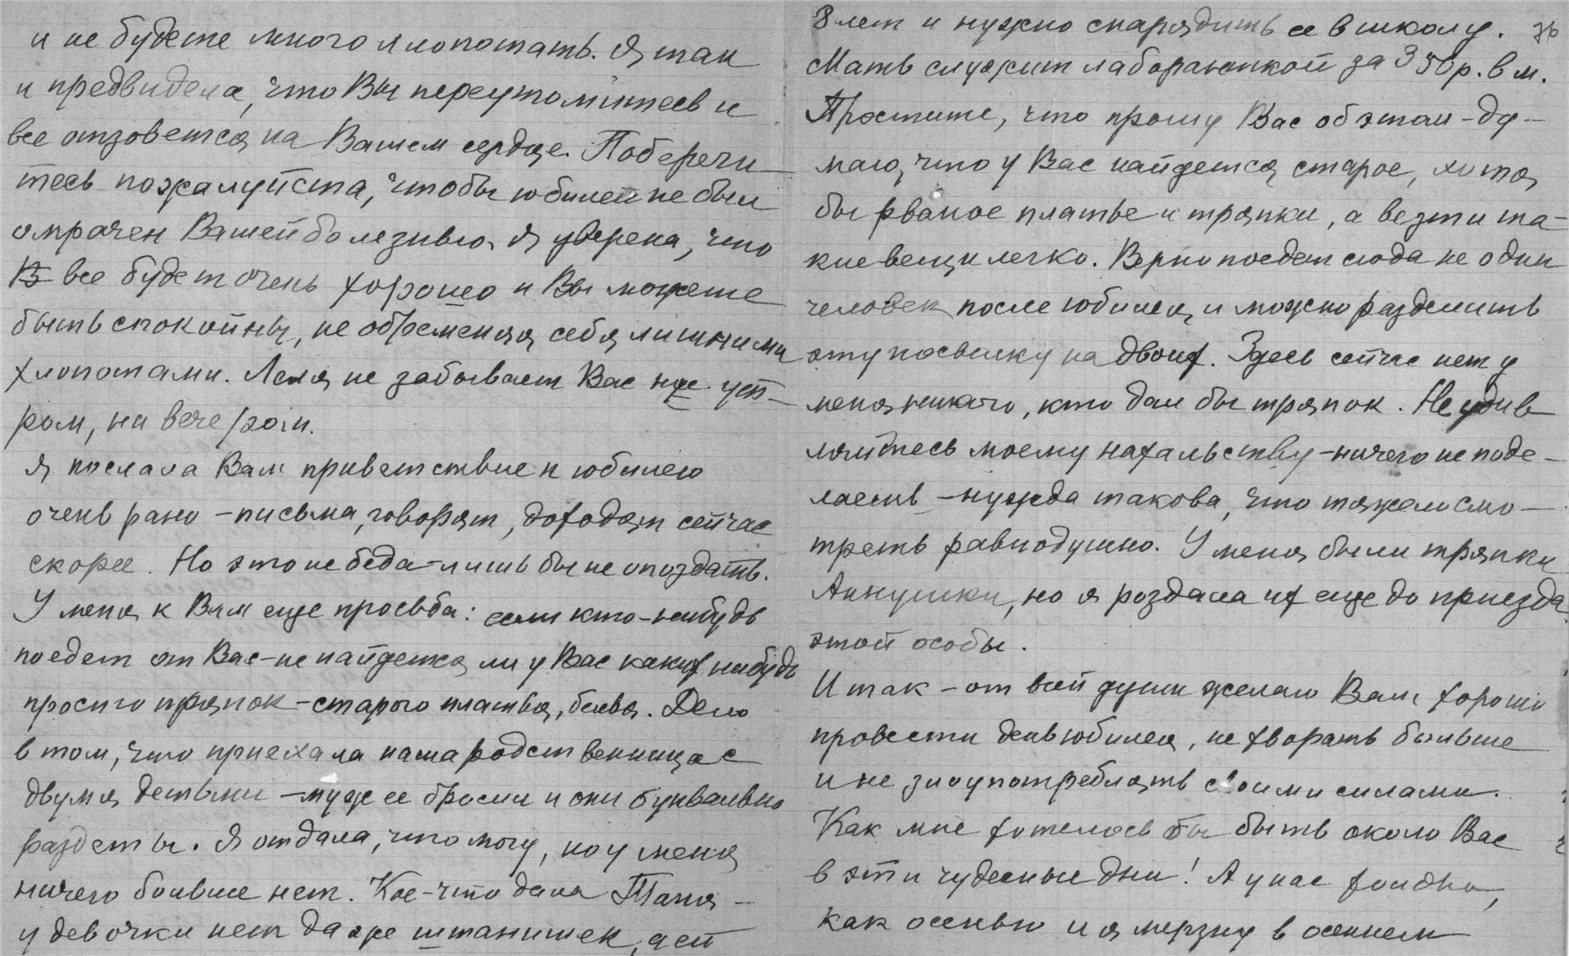 и не будете много хлопотать. Я так
и предвидела, что Вы переутомитесь и
все отзовется на Вашем сердце. Поберечи
тесь пожалуйста, чтобы юбилей не был
омрачен Вашей болезнью. Я уверена, что
все будет очень хорошо и Вы можете
быть спокойны, не обременяя себя лишними
хлопотами. Леля не забывает Вас ни ут-
ром, ни вечером.
Я послала Вам приветствие к юбилею
очень рано – письма, говорят, доходят сейчас
скорее. Но это не беда – лишь бы не опоздать.
У меня к Вам еще просьба: если кто-нибудь
поедет от Вас – не найдется ли у Вас каких нибудь
просто тряпок – старого платья, белья. Дело
в том, что приехала наша родственница с
двумя детьми – муж ее бросил и они буквально
раздеты. Я отдала, что могу, но у меня
ничего больше нет. Кое-что дала Таня –
у девочки нет даже штанишек, а ей
8 лет и нужно снарядить ее в школу.
76
Мать служит лаборанткой за 350 р. в м.
Простите, что прошу Вас об этом – ду-
маю, что у Вас найдется старое, хотя
бы рваное платье и тряпки, а везти та-
кие вещи легко. Верно поедет сюда не один
человек после юбилея, и можно разделить
эту посылку на двоих. Здесь сейчас нет у
меня никого, кто дал бы тряпок. Не удив
ляйтесь моему нахальству – ничего не поде-
лаешь – нужда такова, что тяжело смо-
треть равнодушно. У меня были тряпки
Аннушки, но я раздала их еще до приезда
этой особы.
Итак – от всей души желаю Вам хорошо
провести день юбилея, не хворать больше
и не злоупотреблять своими силами.
Как мне хотелось бы быть около Вас
в эти чудесные дни! А у нас холодно,
как осенью и я мерзну в осеннем